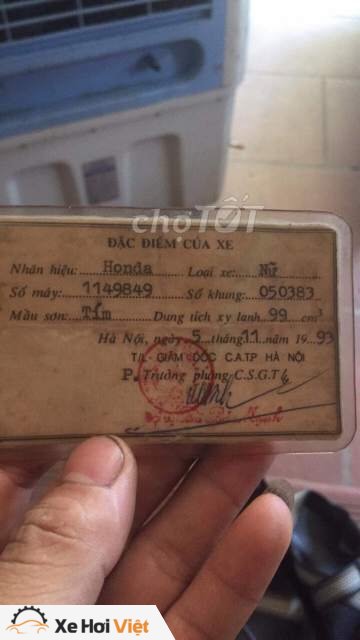 chợTỐT
ĐẶC ĐIỂM CỦA XE
Nhãn hiệu: Honda Loại xe: Nữ
Số máy: 1149849 Số khung: 050383
Mầu sơn: Tím Dung tích xy lanh 99 cm³
Hà Nội, ngày 5 tháng 11 năm 19 93
T/L GIÁM ĐỐC C.A.T.P HÀ NỘI
P. Trưởng phòng C.S.G.T
Xe Hơi Việt